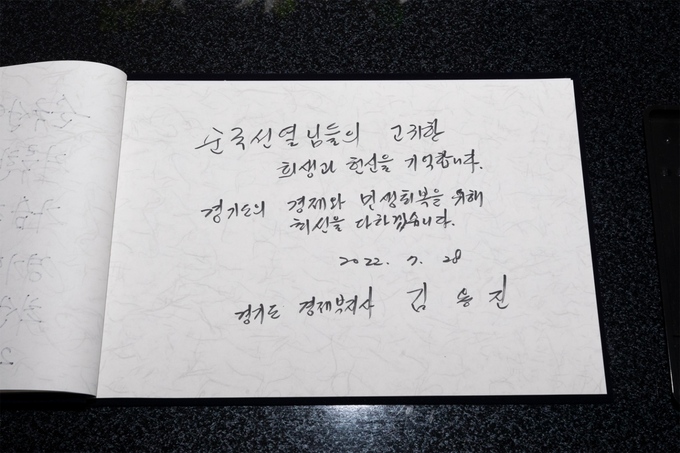 순국선열님들의 고귀한
희생과 헌신을 기억합니다.
경기도의 경제와 민생회복을 위해
최선을 다하겠습니다.
2022. 7. 28
경기도 경제부지사 김 용 진